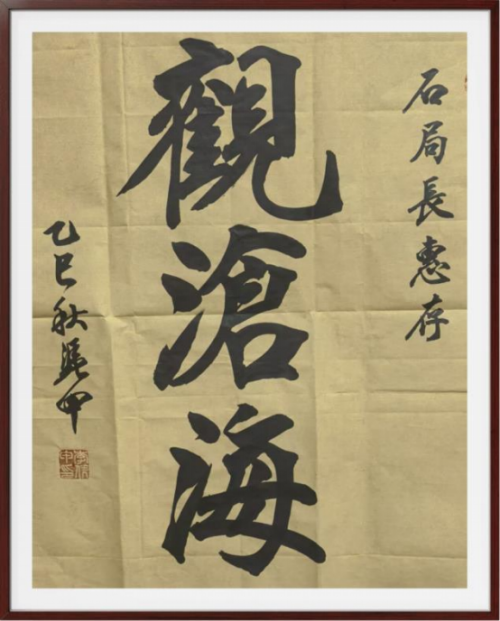 石局長惠存
觀滄海
乙巳秋